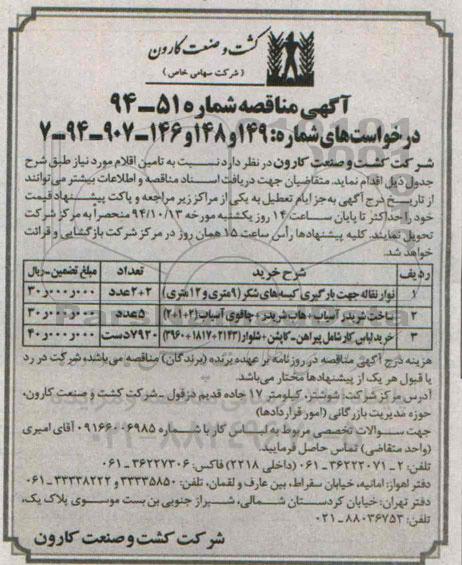 کشت و صنعت کارون
( شرکت سهامی خاص )
آگهی مناقصه شماره ۵۱ــ۹۴
درخواست‌های شماره: ۱۴۹و۱۴۸و۱۴۶ــ۹۰۷ــ۹۴ــ۷
شرکت کشت و صنعت کارون در نظر دارد نسبت به تامین اقلام مورد نیاز طبق شرح
جدول ذیل اقدام نماید. متقاضیان جهت دریافت اسناد مناقصه و اطلاعات بیشتر می‌توانند
از تاریخ درج آگهی به‌جز ایام تعطیل به یکی از مراکز زیر مراجعه و پاکت پیشنهاد قیمت
خود را حداکثر تا پایان ساعت ۱۴ روز یکشنبه مورخه ۹۴/۱۰/۱۳ منحصرا به مرکز شرکت
تحویل نمایند. کلیه پیشنهادها رأس ساعت ۱۵ همان روز در مرکز شرکت بازگشایی و قرائت
خواهد شد.
ردیف شرح خرید تعداد مبلغ تضمین ـ ریال
۱ نوار نقاله جهت بارگیری کیسه‌های شکر (۹متری و ۱۲متری) ۲+۲عدد ۳۰٫۰۰۰٫۰۰۰
۲ ساخت شریدر آسیاب + هاب شریدر + چاقوی آسیاب (۲+۱+۲) ۵عدد ۳۰٫۰۰۰٫۰۰۰
۳ خرید لباس کار شامل پیراهن ـ کاپشن + شلوار (۲۱۴۳+۱۸۱۷+۳۹۶۰) ۷۹۲۰دست ۴۰٫۰۰۰٫۰۰۰
هزینه درج آگهی مناقصه در روزنامه بر عهده برنده (برندگان) مناقصه می‌باشد، شرکت در رد
یا قبول هر یک از پیشنهادها مختار می‌باشد.
آدرس مرکز شرکت: شوشتر، کیلومتر ۱۷ جاده قدیم دزفول ـ شرکت کشت و صنعت کارون،
حوزه مدیریت بازرگانی (امور قراردادها)
جهت سوالات تخصصی مربوط به لباس کار با شماره ۰۹۱۶۶۰۰۶۹۸۵ آقای امیری
(واحد متقاضی) تماس حاصل فرمایید.
تلفن: ۲ ـ ۳۶۲۲۲۰۷۱ ـ ۰۶۱ (داخلی ۲۲۱۸) فاکس: ۳۶۲۲۷۳۰۶ ـ ۰۶۱
دفتر اهواز: امانیه، خیابان سقراط، بین عارف و لقمان، تلفن: ۳۳۳۳۵۸۵۰ و ۳۳۳۳۸۲۲۲ ـ ۰۶۱
دفتر تهران: خیابان کردستان شمالی، شیراز جنوبی بن بست موسوی پلاک یک،
تلفن: ۸۸۰۳۶۷۵۳ ـ ۰۲۱
شرکت کشت و صنعت کارون